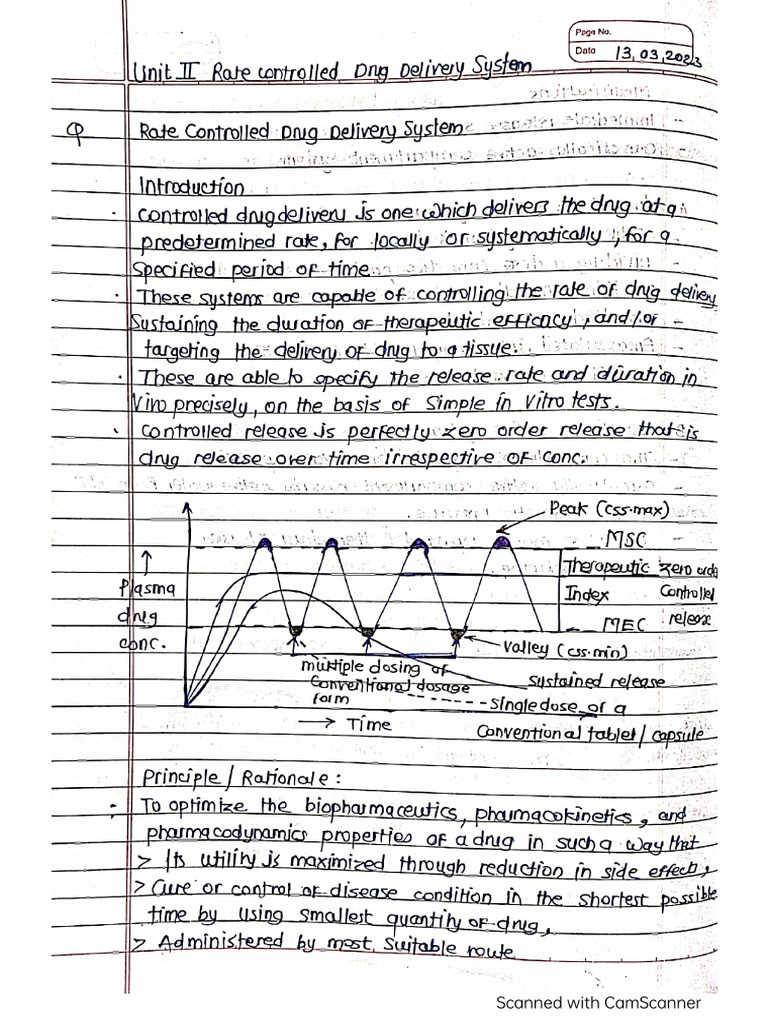 Page No.
Date 13,03,2023
Unit II Rate controlled Drug Delivery System
Q Rate Controlled Drug Delivery System
Introduction
· Controlled drug delivery is one which delivers the drug at a
predetermined rate, for locally or systematically, for a
specified period of time.
· These systems are capable of controlling the rate of drug delivery
Sustaining the duration of therapeutic efficacy, and/or
targeting the delivery of drug to a tissue.
· These are able to specify the release rate and duration in
Vivo precisely, on the basis of Simple in Vitro tests.
· Controlled release is perfectly zero order release that is
drug release over time irrespective of conc.
Peak (css.max)
MSC
Therapeutic Index
zero order Controlled release
MEC
Valley (css.min)
↑ Plasma drug conc.
multiple dosing of
Conventional dosage
form
sustained release
single dose of a
Conventional tablet / capsule
→ Time
Principle / Rationale :
- To optimize the biopharmaceutics, pharmacokinetics, and
pharmacodynamics properties of a drug in such a way that
> Its utility is maximized through reduction in side effect,
> Cure or control of disease condition in the shortest possible
time by using smallest quantity of drug,
> Administered by most suitable route
Scanned with CamScanner